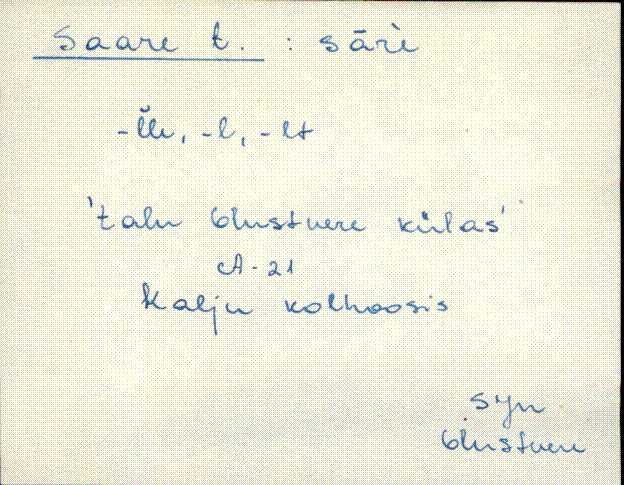 Saare t. : sārè̬
-l̆le, -l, -lt
'talu Olustvere külas'
A-21
Kalju kolhoosis
SJn
Olustvere